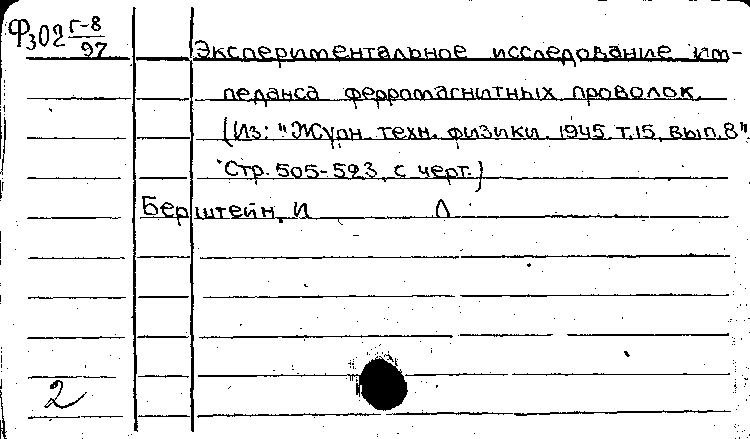 Ф302 Г-8/97
Экспериментальное исследование им-
педанса ферромагнитных проволок.
(Из: "Журн. техн. физики. 1945. т.15, вып.8"
Стр. 505-523, с черт.)
Берштейн, И Л
2